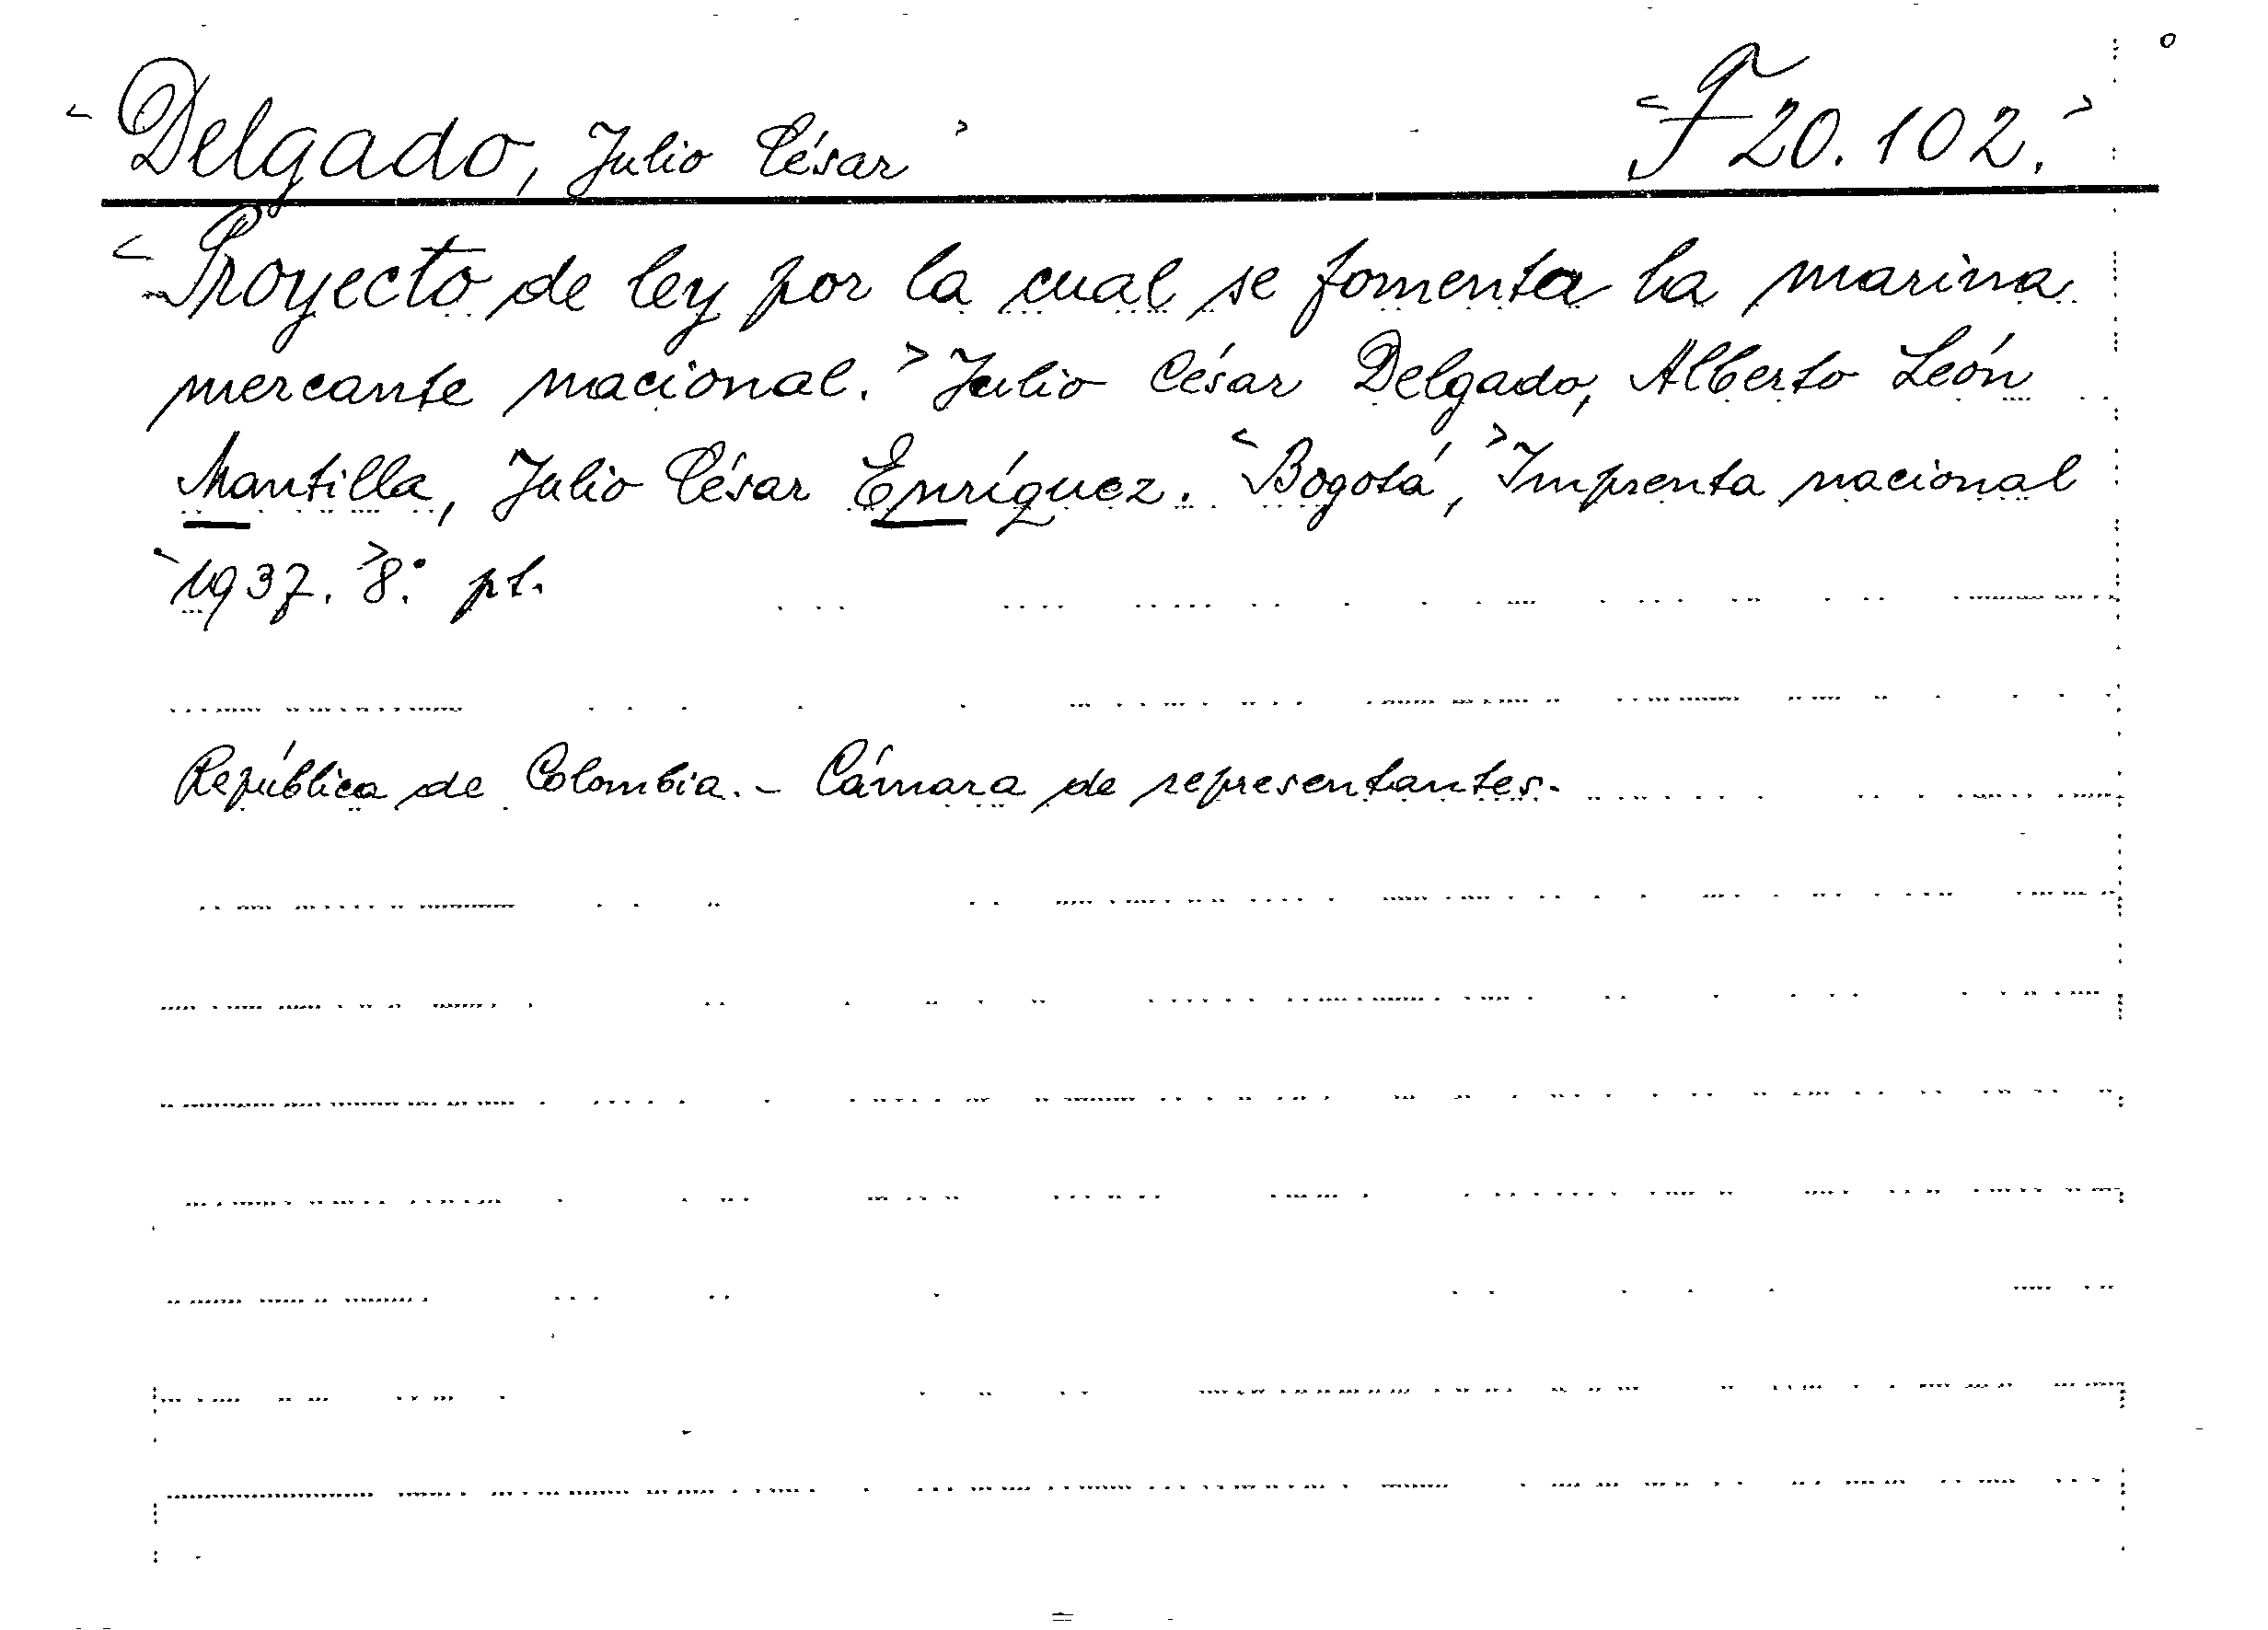 <Delgado, Julio César> <F 20.102.>
<Proyecto de ley por la cual se fomenta la marina
mercante nacional.> Julio César Delgado, Alberto León
Mantilla, Julio César Enríquez. <Bogotá,> Imprenta nacional
<1937.> 8º pt.
República de Colombia.- Cámara de representantes.